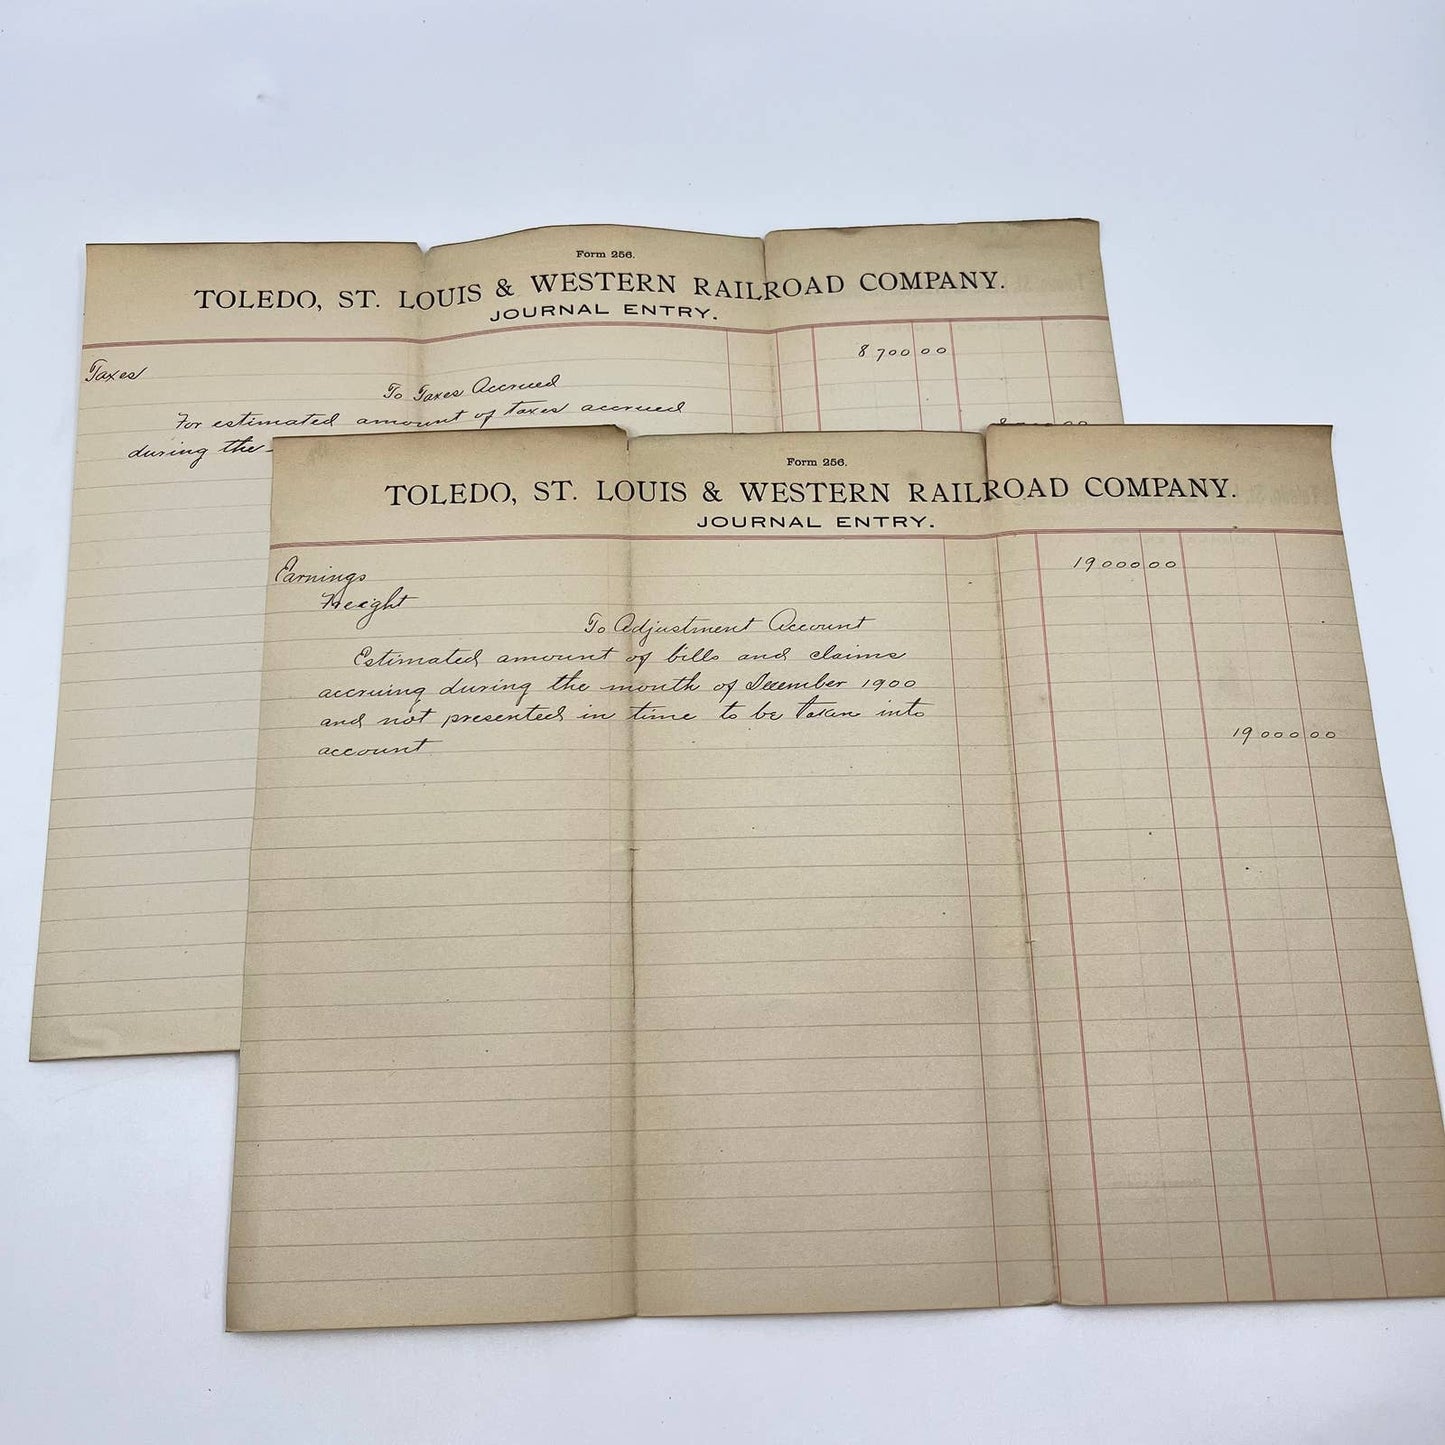 Form 256.
TOLEDO, ST. LOUIS & WESTERN RAILROAD COMPANY.
JOURNAL ENTRY.
Taxes 8 700 00
To Taxes Accrued
For estimated amount of taxes accrued
during the
Form 256.
TOLEDO, ST. LOUIS & WESTERN RAILROAD COMPANY.
JOURNAL ENTRY.
Earnings 19 000 00
Freight
To Adjustment Account
Estimated amount of bills and claims
accruing during the month of December 1900
and not presented in time to be taken into
account 19 000 00